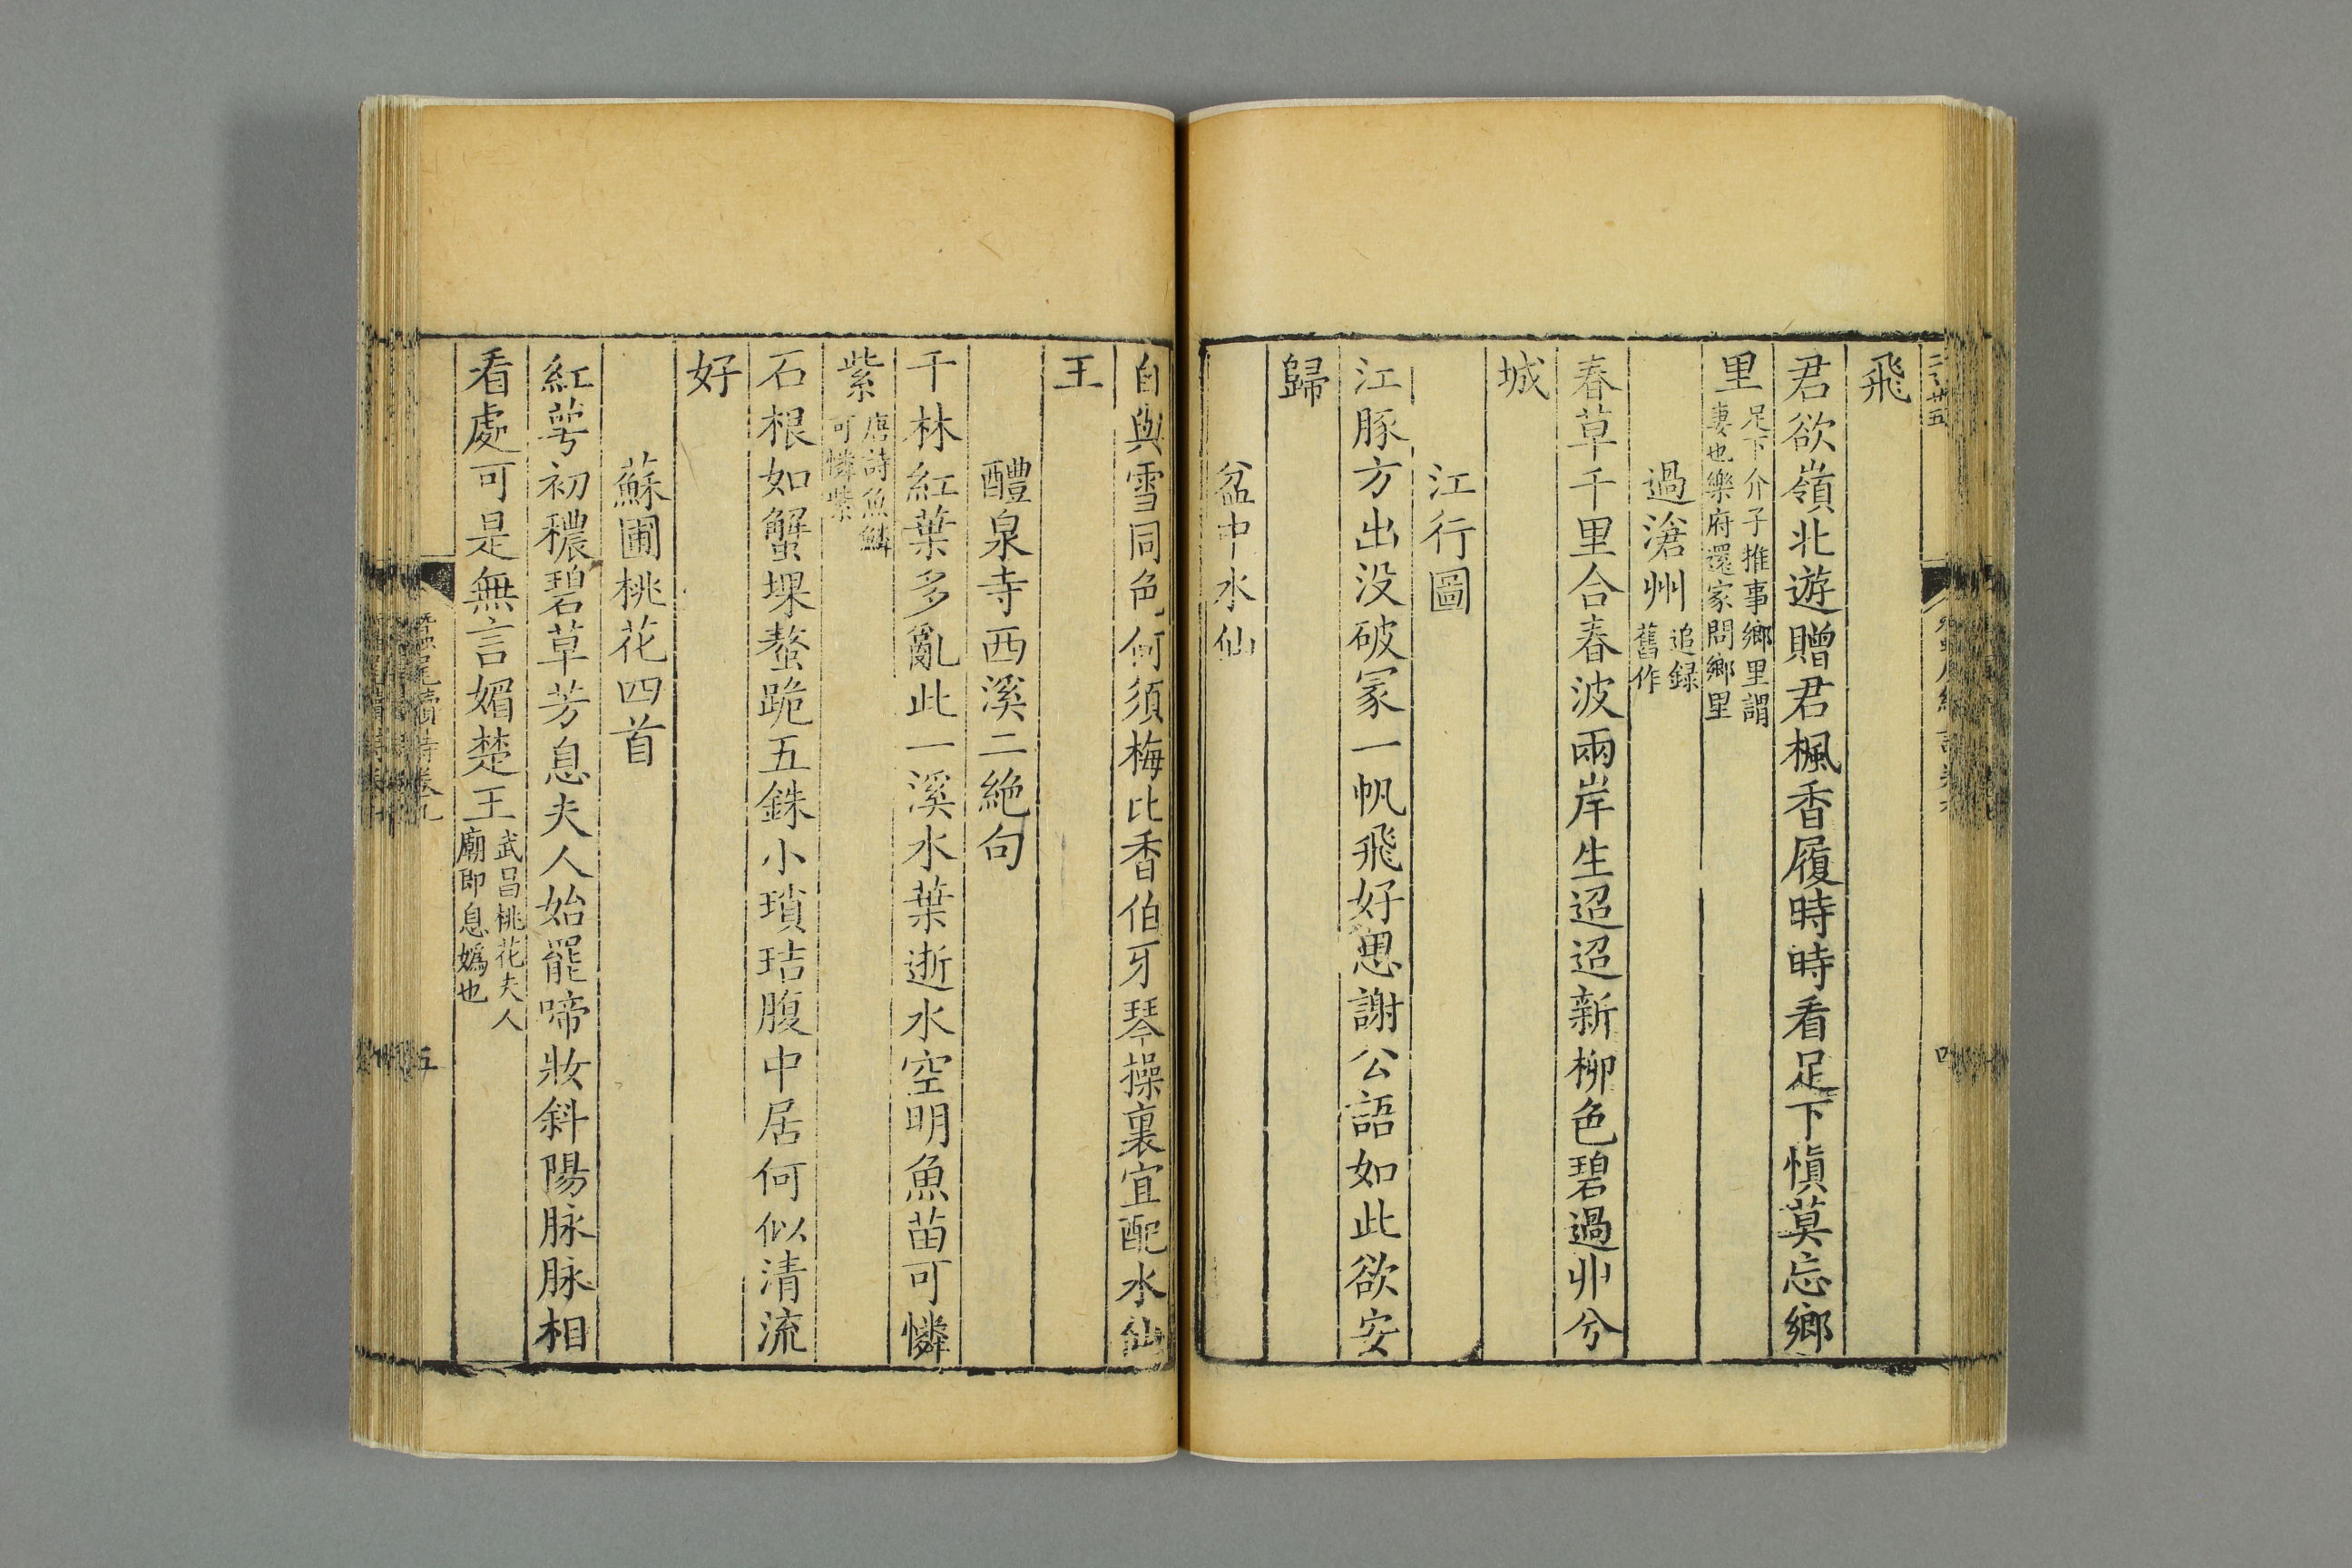 飛
君欲嶺北遊贈君楓香履時時看足下愼莫忘鄉
里足下介子推事鄉里謂妻也樂府還家問鄉里
過滄州追録舊作
春草千里合春波兩岸生迢迢新柳色碧過丱兮
城
江行圖
江豚方出没破冡一帆飛好思謝公語如此欲安
歸
盆中水仙
自與雪同色何須梅比香伯牙琴操裏宜配水仙
王
醴泉寺西溪二絶句
千林紅葉多亂此一溪水葉逝水空明魚苗可憐
紫唐詩魚鱗可憐紫
石根如蟹堁螯跪五銖小瑣琺腹中居何似清流
好
蘇圃桃花四首
紅萼初穠碧草芳息夫人始罷啼妝斜陽脉脉相
看處可是無言媚楚王武昌桃花夫人廟即息媯也
蠶尾續詩卷九
五